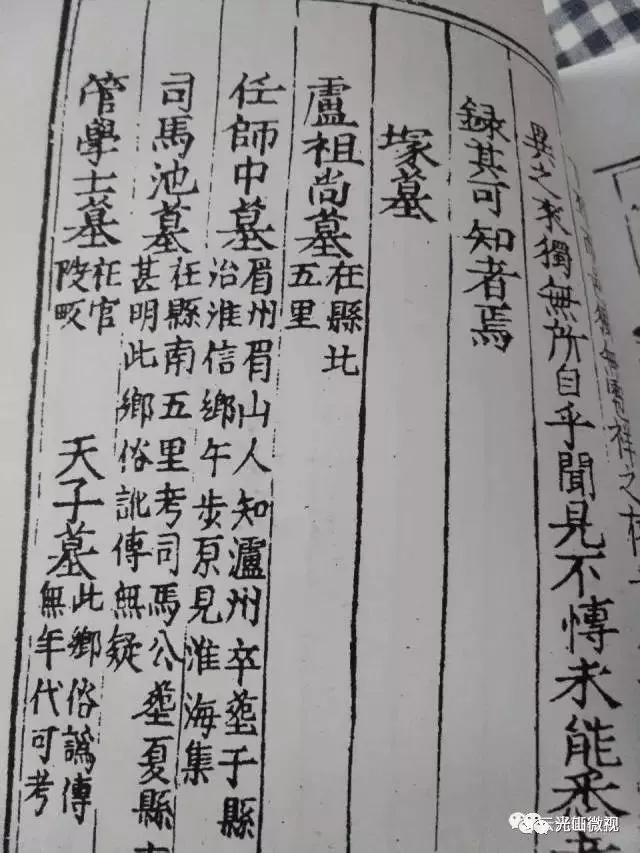 異之來獨無所自乎聞見不愽未能悉
錄其可知者焉
塚墓
盧祖尚墓在縣北
五里
任師中墓眉州眉山人知瀘州卒塟于縣
治淮信鄉午步原見淮海集
司馬池墓在縣南五里考司馬公塟夏縣
甚明此鄉俗訛傳無疑
管學士墓在官
陂畈
天子墓此鄉俗譌傳
無年代可考
云光山微视